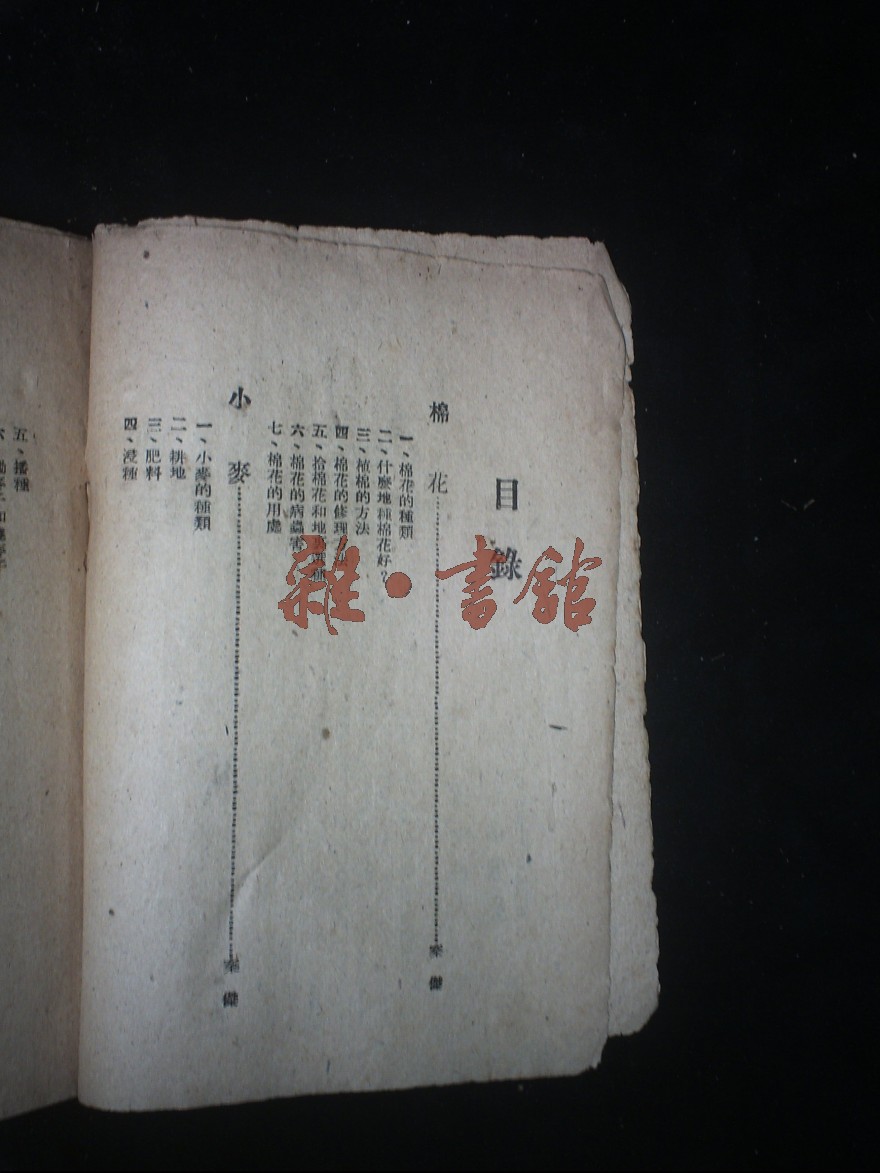 目錄
棉花
一、棉花的種類
二、什麼地種棉花好？
三、植棉的方法
四、棉花的修理
五、拾棉花和地
六、棉花的病蟲害
七、棉花的用處
小麥
一、小麥的種類
二、耕地
三、肥料
四、浸種
五、播種
六、
雜·書館